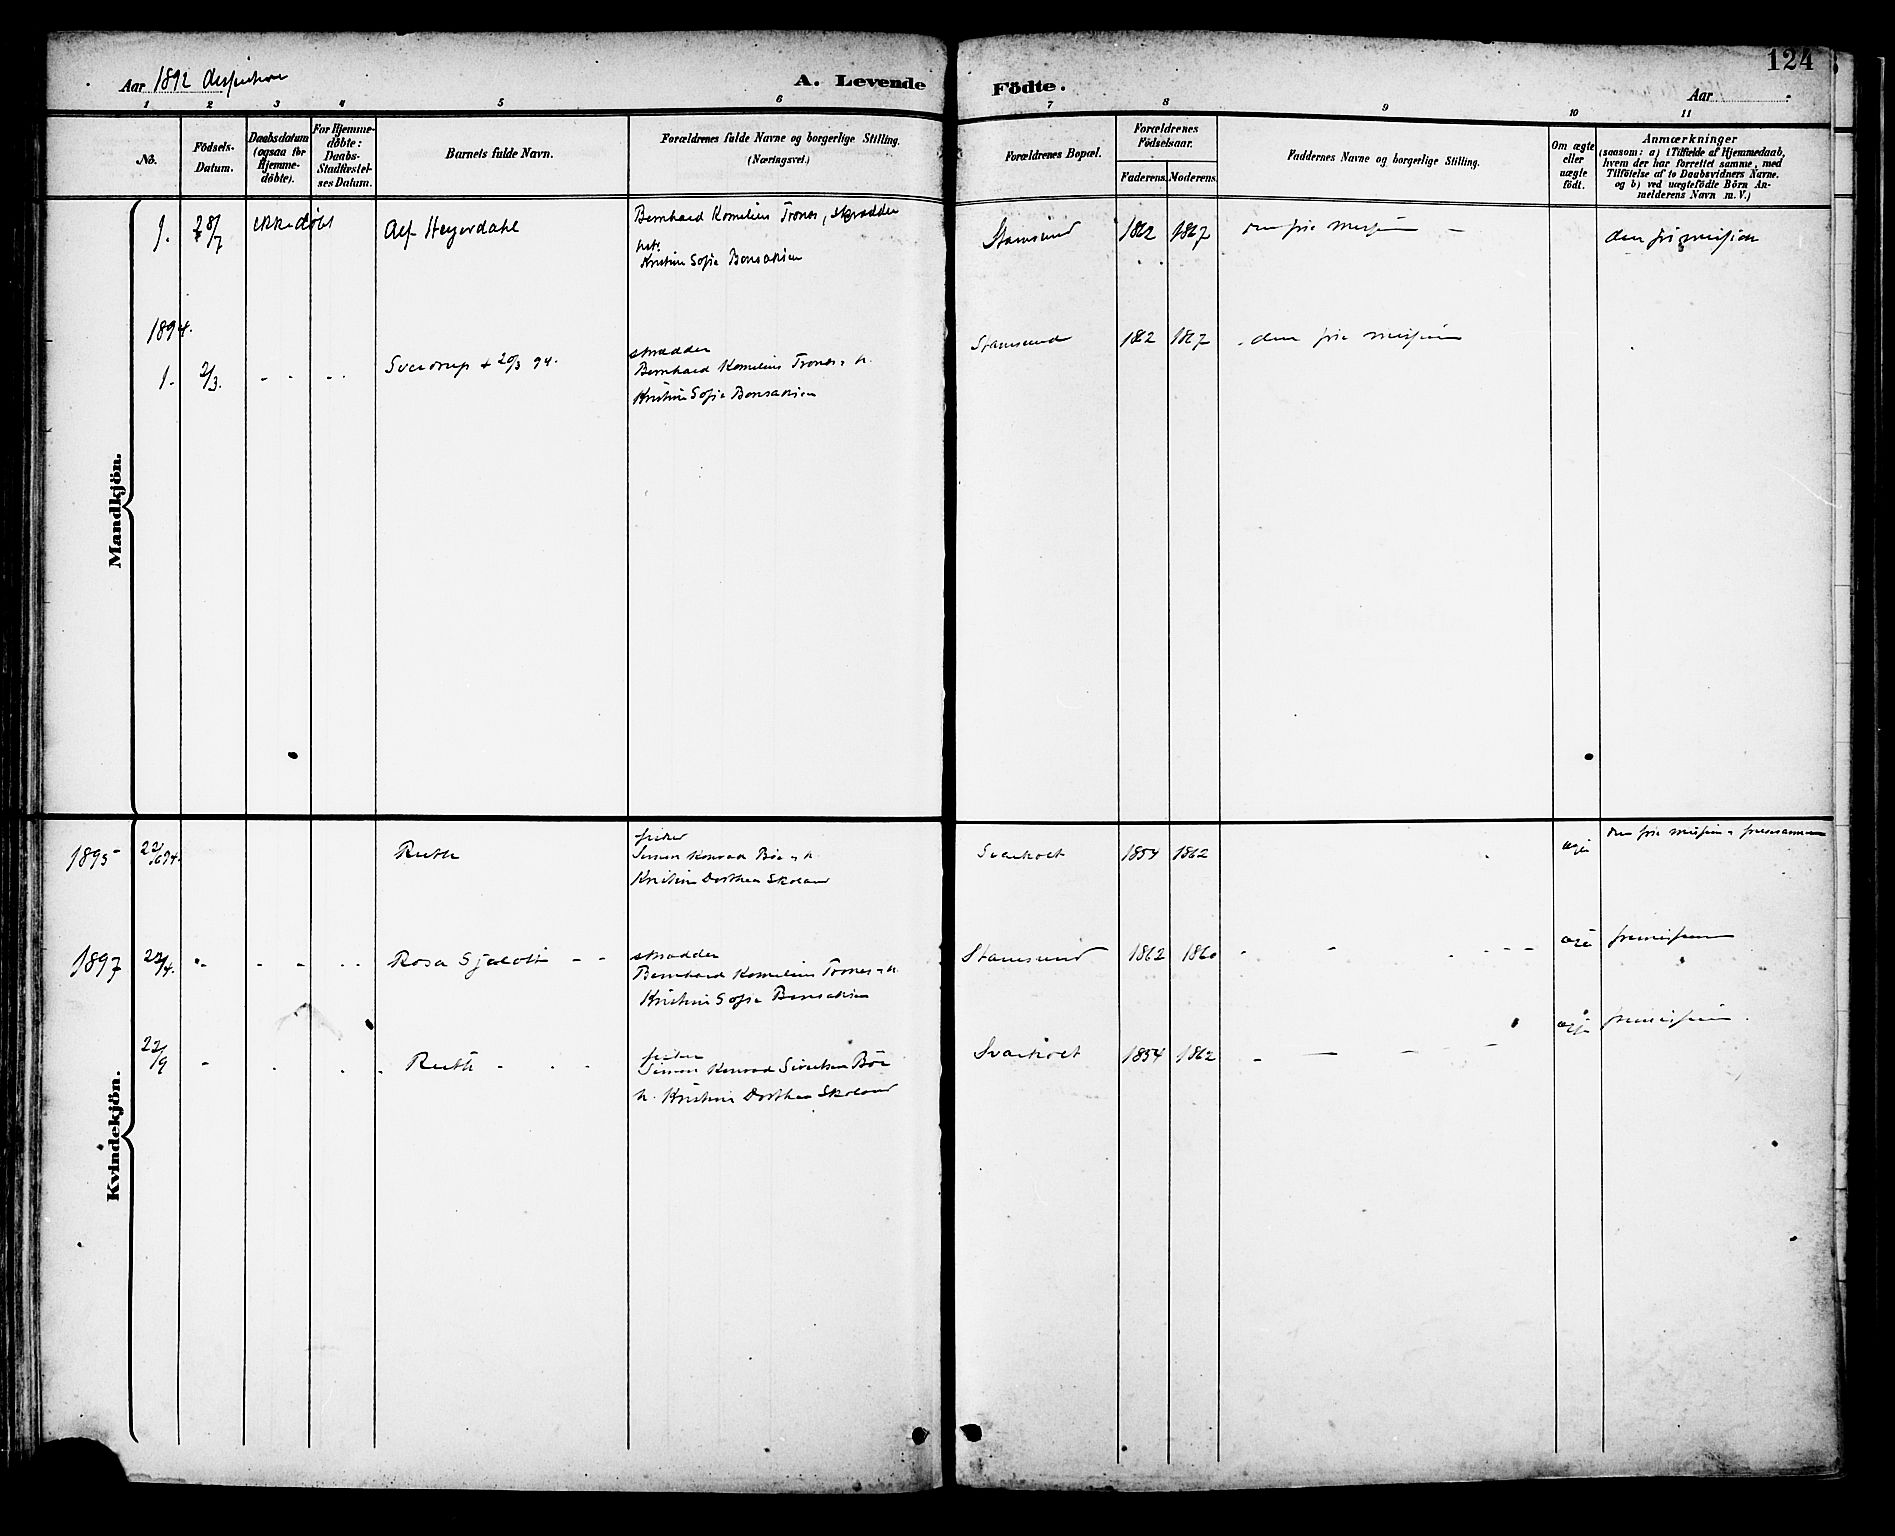 124
Aar 1892
A. Levende Födte.
Aar
1 2 3 4 5 6 7 8 9 10 11
No.
Födsels-
Datum.
Daabsdatum
(ogsaa for
Hjemme-
döbte).
For Hjemme-
döbte:
Daabs-
Stadfæstel-
ses Datum.
Barnets fulde Navn.
Forældrenes fulde Navne og borgerlige Stilling.
(Næringsvei.)
Forældrenes Bopæl.
Forældrenes
Födselsaar.
Faderens. Moderens.
Faddernes Navne og borgerlige Stilling.
Om ægte
eller
uægte
födt.
Anmærkninger
(saasom: a) i Tilfælde af Hjemmedaab,
hvem der har forrettet samme, med
Tilföielse af to Daabsvidners Navne.
og b) ved uægtefödte Börn An-
melderens Navn m. V.)
Mandkjön.
1. 28/7 ikke döbt Alf Heyerdahl
Bernhard Kornelius Trones, skrædder
Kristine Sofie Bonsaksen
Stamsund 1862 1867 den frie mission
den fri mission
1894.
1. 2/3. Sverdrup + 20/3 94.
skrædder
Bernhard Kornelius Trones - h.
Kristine Sofie Bonsaksen
Stamsund 1862 1867 den frie mission
Kvindekjön.
1895 22/6 94. Ruth
fisker
Simon Konrad Böe - h.
Kristine Dorthea Skoland
Svarholt 1854 1862 ægte
den frie mission
1897 22/4. Rosa Sjalott
skrædder
Bernhard Kornelius Trones - h.
Kristine Sofie Bonsaksen
Stamsund 1862 1860 ægte frimission
22/9 Ruth
fisker
Simon Konrad Sivertsen Böe
h. Kristine Dorthea Skoland
Svarholt 1854 1862 ægte frimission.